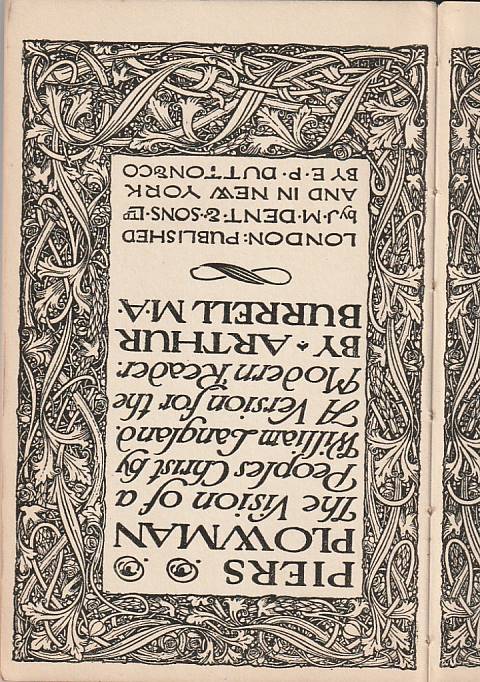 PIERS
PLOWMAN
The Vision of a
Peoples Christ by
William Langland.
A Version for the
Modern Reader.
BY ARTHUR
BURRELL M·A·
LONDON: PUBLISHED
by J·M·DENT·&·SONS·LTD
AND IN NEW YORK
BY·E·P·DUTTON&CO